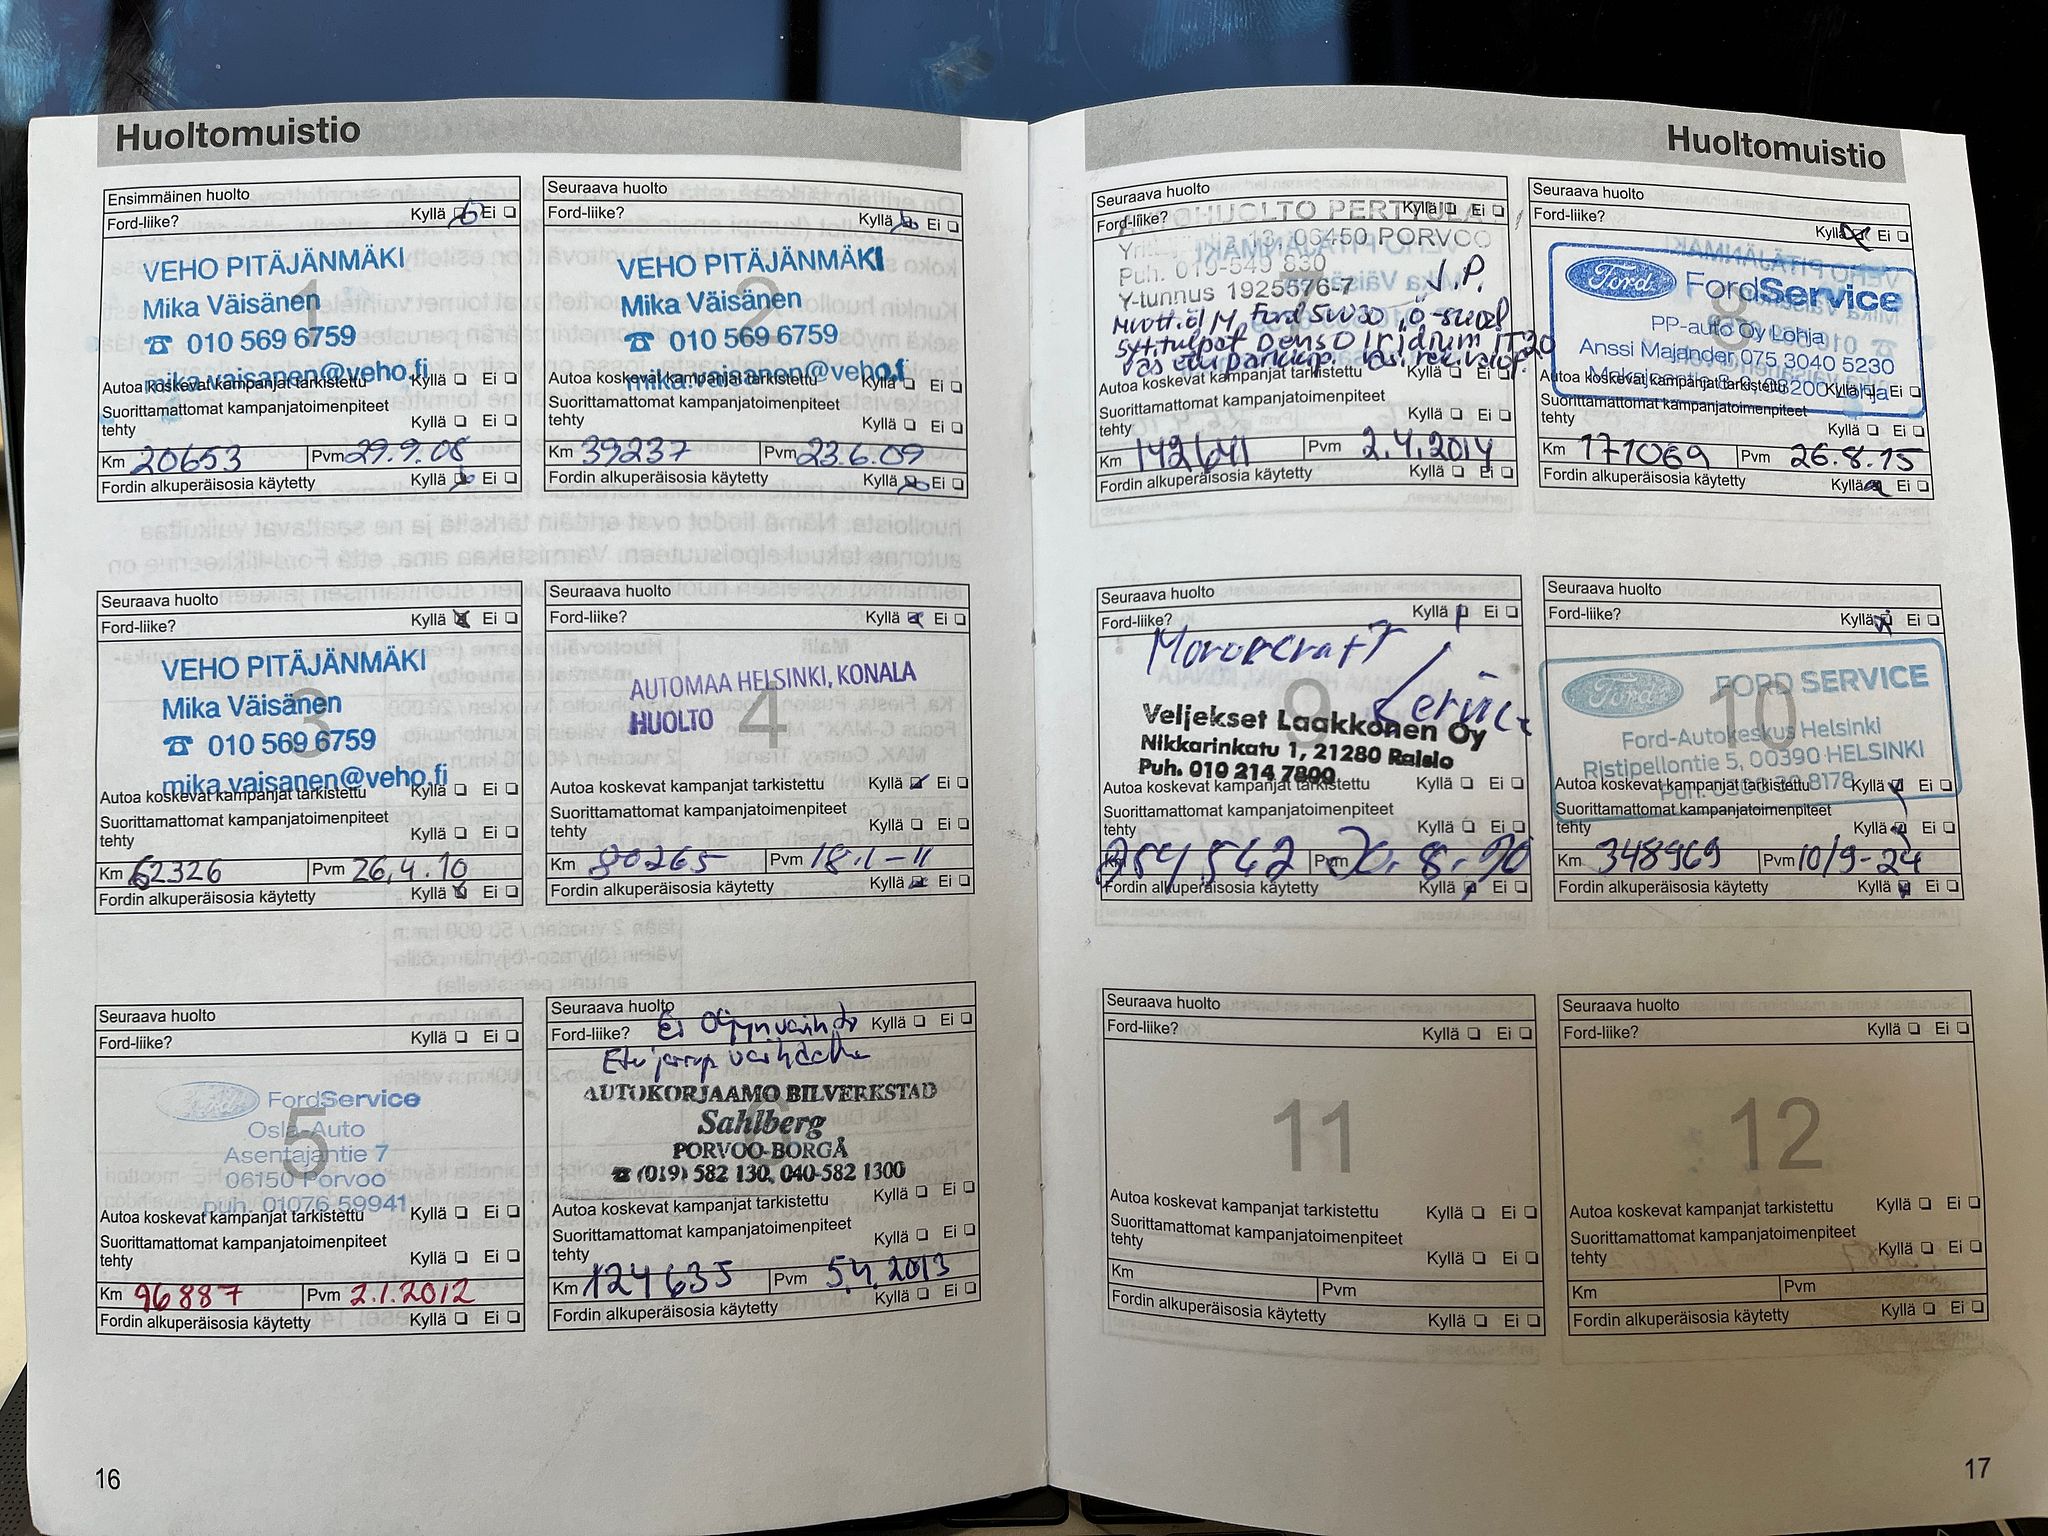 Huoltomuistio
Ensimmäinen huolto
Ford-liike? Kyllä Ei
1
VEHO PITÄJÄNMÄKI
Mika Väisänen
☎ 010 569 6759
mika.vaisanen@veho.fi
Autoa koskevat kampanjat tarkistettu Kyllä Ei
Suorittamattomat kampanjatoimenpiteet
tehty Kyllä Ei
Km 20653 Pvm 29.9.08
Fordin alkuperäisosia käytetty Kyllä Ei
Seuraava huolto
Ford-liike? Kyllä Ei
2
VEHO PITÄJÄNMÄKI
Mika Väisänen
☎ 010 569 6759
mika.vaisanen@veho.fi
Autoa koskevat kampanjat tarkistettu Kyllä Ei
Suorittamattomat kampanjatoimenpiteet
tehty Kyllä Ei
Km 39237 Pvm 23.6.09
Fordin alkuperäisosia käytetty Kyllä Ei
Seuraava huolto
Ford-liike? Kyllä Ei
3
VEHO PITÄJÄNMÄKI
Mika Väisänen
☎ 010 569 6759
mika.vaisanen@veho.fi
Autoa koskevat kampanjat tarkistettu Kyllä Ei
Suorittamattomat kampanjatoimenpiteet
tehty Kyllä Ei
Km 62326 Pvm 26.4.10
Fordin alkuperäisosia käytetty Kyllä Ei
Seuraava huolto
Ford-liike? Kyllä Ei
4
AUTOMAA HELSINKI, KONALA
HUOLTO
Autoa koskevat kampanjat tarkistettu Kyllä Ei
Suorittamattomat kampanjatoimenpiteet
tehty Kyllä Ei
Km 80265 Pvm 18.1-11
Fordin alkuperäisosia käytetty Kyllä Ei
Seuraava huolto
Ford-liike? Kyllä Ei
5
Ford FordService
Osla-Auto
Asentajantie 7
06150 Porvoo
puh. 01076 59941
Autoa koskevat kampanjat tarkistettu Kyllä Ei
Suorittamattomat kampanjatoimenpiteet
tehty Kyllä Ei
Km 96887 Pvm 2.1.2012
Fordin alkuperäisosia käytetty Kyllä Ei
Seuraava huolto
Ford-liike? Ei Öljynvaihto Kyllä Ei
Etujarrup vaihdettu
6
AUTOKORJAAMO BILVERKSTAD
Sahlberg
PORVOO-BORGÅ
☎ (019) 582 130, 040-582 1300
Autoa koskevat kampanjat tarkistettu Kyllä Ei
Suorittamattomat kampanjatoimenpiteet
tehty Kyllä Ei
Km 124635 Pvm 5.4.2013
Fordin alkuperäisosia käytetty Kyllä Ei
16
Huoltomuistio
Seuraava huolto
Ford-liike? Kyllä Ei
7
AUTOHUOLTO PERTTULA
13, 06450 PORVOO
Puh. 019-549 830
Y-tunnus 1925676-7 J.P.
Moott.öl M. Ford 5W30, ö-suod
Syt.tulpat Denso Iridium IT20
vas etuparkkip.
Autoa koskevat kampanjat tarkistettu Kyllä Ei
Suorittamattomat kampanjatoimenpiteet
tehty Kyllä Ei
Km 142641 Pvm 2.4.2014
Fordin alkuperäisosia käytetty Kyllä Ei
Seuraava huolto
Ford-liike?
Kyllä Ei
8
Ford FordService
PP-auto Oy Lohja
Anssi Majander 075 3040 5230
08200 Lohja
Autoa koskevat kampanjat tarkistettu Kyllä Ei
Suorittamattomat kampanjatoimenpiteet
tehty Kyllä Ei
Km 171069 Pvm 26.8.15
Fordin alkuperäisosia käytetty Kyllä Ei
Seuraava huolto
Ford-liike? Kyllä Ei
9
Motorcraft
Service
Veljekset Laakkonen Oy
Nikkarinkatu 1, 21280 Raisio
Puh. 010 214 7800
Autoa koskevat kampanjat tarkistettu Kyllä Ei
Suorittamattomat kampanjatoimenpiteet
tehty Kyllä Ei
Km 254562 Pvm 20.8.20
Fordin alkuperäisosia käytetty Kyllä Ei
Seuraava huolto
Ford-liike? Kyllä Ei
10
Ford FORD SERVICE
Ford-Autokeskus Helsinki
Ristipellontie 5, 00390 HELSINKI
Autoa koskevat kampanjat tarkistettu Kyllä Ei
Suorittamattomat kampanjatoimenpiteet
tehty Kyllä Ei
Km 348969 Pvm 10/9-24
Fordin alkuperäisosia käytetty Kyllä Ei
Seuraava huolto
Ford-liike? Kyllä Ei
11
Autoa koskevat kampanjat tarkistettu Kyllä Ei
Suorittamattomat kampanjatoimenpiteet
tehty Kyllä Ei
Km Pvm
Fordin alkuperäisosia käytetty Kyllä Ei
Seuraava huolto
Ford-liike? Kyllä Ei
12
Autoa koskevat kampanjat tarkistettu Kyllä Ei
Suorittamattomat kampanjatoimenpiteet
tehty Kyllä Ei
Km Pvm
Fordin alkuperäisosia käytetty Kyllä Ei
17